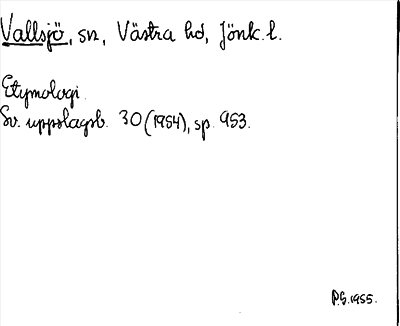 Vallsjö, sn, Västra hd, Jönk. l.
Etymologi.
Sv. uppslagsb. 30 (1954), sp. 953.
P.G. 1955.